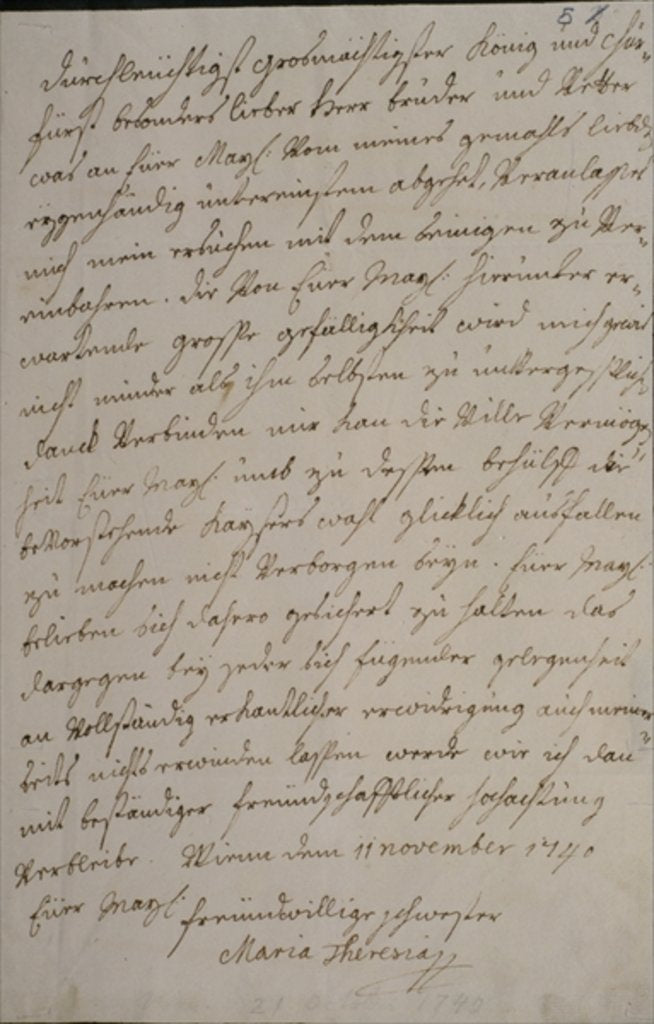 5 1
durchleüchtigst grosmächtigster König und chur=
fürst besonders lieber Herr bruder und Vetter
was an Eüer May: Vom meines gemahls liebd
eygenhändig untereinstem abgehet, Veranlasset
mich mein ersuchen mit dem seinigen zu Ver=
einbahren. die Von Eüer May: hierunter er=
wartende grosse gefälligkheit wird mich gewis
nicht minder als ihm selbsten zu
danck Verbinden mir kan die Ville Vermög
heit Eüer May: umb zu dessen behülff die
beVorstehende Kaysers wahl glicklich ausfallen
zu machen nicht Verborgen seyn. Eüer May:
belieben sich dahero gesichert zu halten das
dargegen bey jeder sich fügender gelegenheit
an Vollständig erkantlicher erwidrigung auch meiner=
seits nichts erwinden lassen werde wie ich dan
mit beständiger freündschafftlicher hochachtung
Verbleibe. Wienn dem 11 november 1740
Eüer May: freündwillige schwester
Maria Theresia